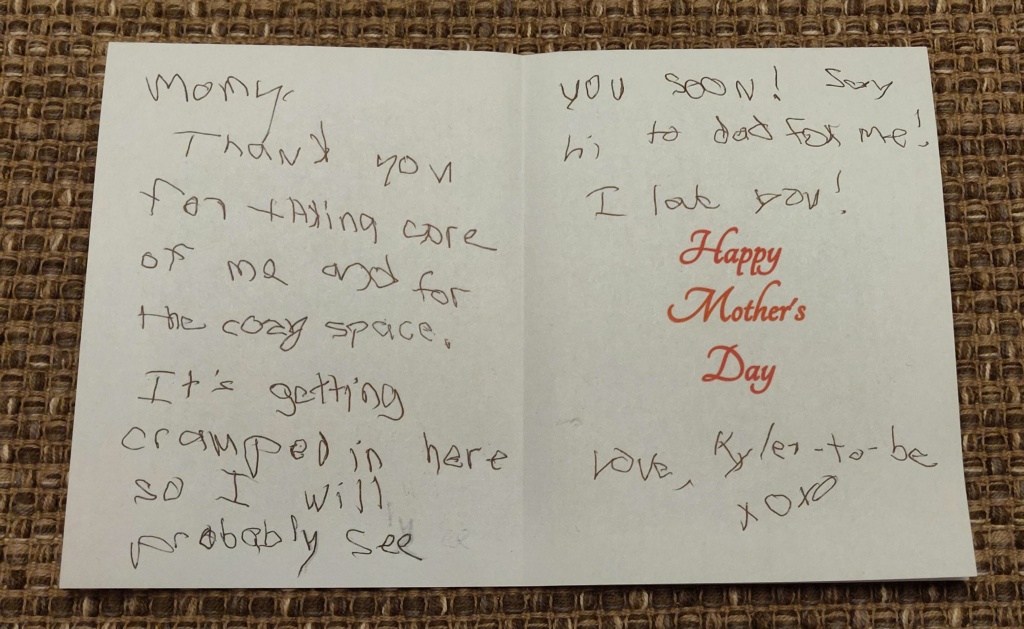 Momy,
Thank you
for taking care
of me and for
the cozy space.
It's getting
cramped in here
so I will
probably see
you soon! Say
hi to dad for me!
I lak you!
Happy
Mother's
Day
Love, Kyler-to-be
xoxo